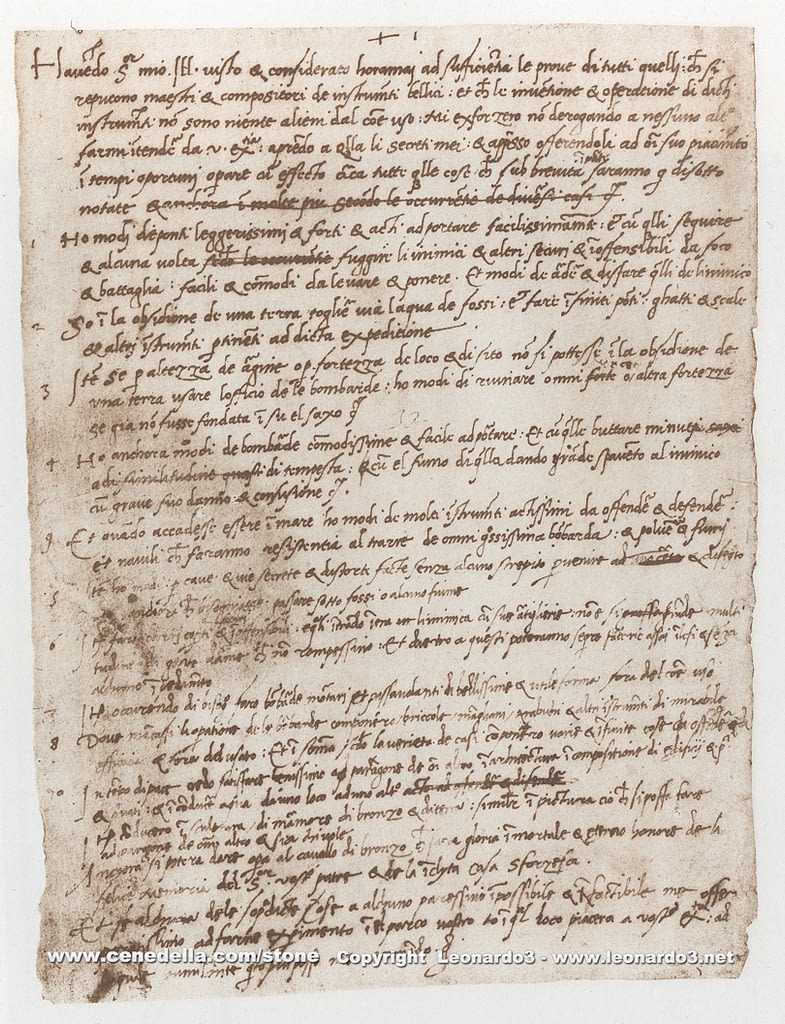 Havedo S.or mio Ill. visto & considerato horamai ad sufficientia le prove di tutti quelli ch si
reputono maestri & compositori de instrumti bellici: et ch le inventione & operatione di dicti
instrumti no sono niente alieni dal coe uso: Mi exforzero no derogando a nessuno alto
farmi itende da v. ex.tia: apredo a qlla li secreti mei: & appsso offerendoli ad oi suo piacimto
i tempi oportuni operare cu effecto circa tutte qlle cose ch sub brevita i parte saranno q di sotto
notate & anchora i molte piu secodo le occurrentie de divesi casi
Ho modi de ponti leggerissimi & forti & acti ad portare facilissimamte: et cu qlli seguire
& alcuna volta fuggire li inimici & altri securi & ioffensibili da foco
& battaglia: facili & comodi da levare & ponere. Et modi de ardere & disfare qlli de linimico
2 So i la obsidione de una terra toglie via laqua de fossi: et fare ifiniti poti ghatti & scale
& altri istrumti ptinenti ad dicta expeditione
3 Ite se p altezza de argine o p fortezza de loco & di sito no si potesse i la obsidione de
una terra usare lofficio de le bombarde: ho modi di ruinare omni forte o altra fortezza
se gia no fusse fondata i su el saxo
4 Ho anchora modi de bombarde comodissime & facile ad portare: Et cu qlle buttare minuti saxi
ad similitudine quasi di tempesta: & cu el fumo di qlla dando grade spaveto al inimico
cu grave suo danno & confusione
9 Et quado accadesse essere i mare ho modi de molti istrumti actissimi da offende & defende:
et navili ch faranno resistentia al trarre de omni grossissima bobarda: & polvere & fumi
5 Ite ho modi p cave & vie secrete & distorte facte senza alcuno strepito pvenire ad & disegto
anchora ch bisogniasse passare sotto fossi o alcuno fiume
6 carri coperti & ioffensibili: itrado itra li inimica cu sue artiglierie: no e si multi
tudine di gente darme ch no rompessino: Et dietro a questi poteranno fanterie assai ilesi & seza
alchuno ipedimto
7 Ite occurrendo di bisogno faro bobarde mortari et passavolanti di bellissime & utile forme fora del coe uso
8 Dove macassi la opatione de le bobarde componero briccole manghani trabuchi & altri istrumti di mirabile
efficacia & fora del usato: Et i soma la varieta de casi componero varie & infinite cose da offende
10 In tempo di pace credo satisfare benissimo ad paragone de oi altro i architectura i compositione di edificii &
& privati: & i coducere aqua da uno loco ad uno alto
Ite conducero i sculptura di marmore di bronzo & di terra: similr i pictura cio ch si possa fare
ad paragone de omni altro & sia chi vole
Anchora si potera dare opa al cavallo di bronzo ch sara gloria imortale & eterno honore de la
felice memoria del S.or vostro patre & de la inclyta casa Sforzesca.
Et se alchuna de le sopra dicte cose a alchuno paressino ipossibile & infactibile me offero
paratissimo ad farne expimento i el parco vostro o i qual loco piacera a vostr ex.tia: ad
www.cenedella.com/stone Copyright Leonardo3 - www.leonardo3.net